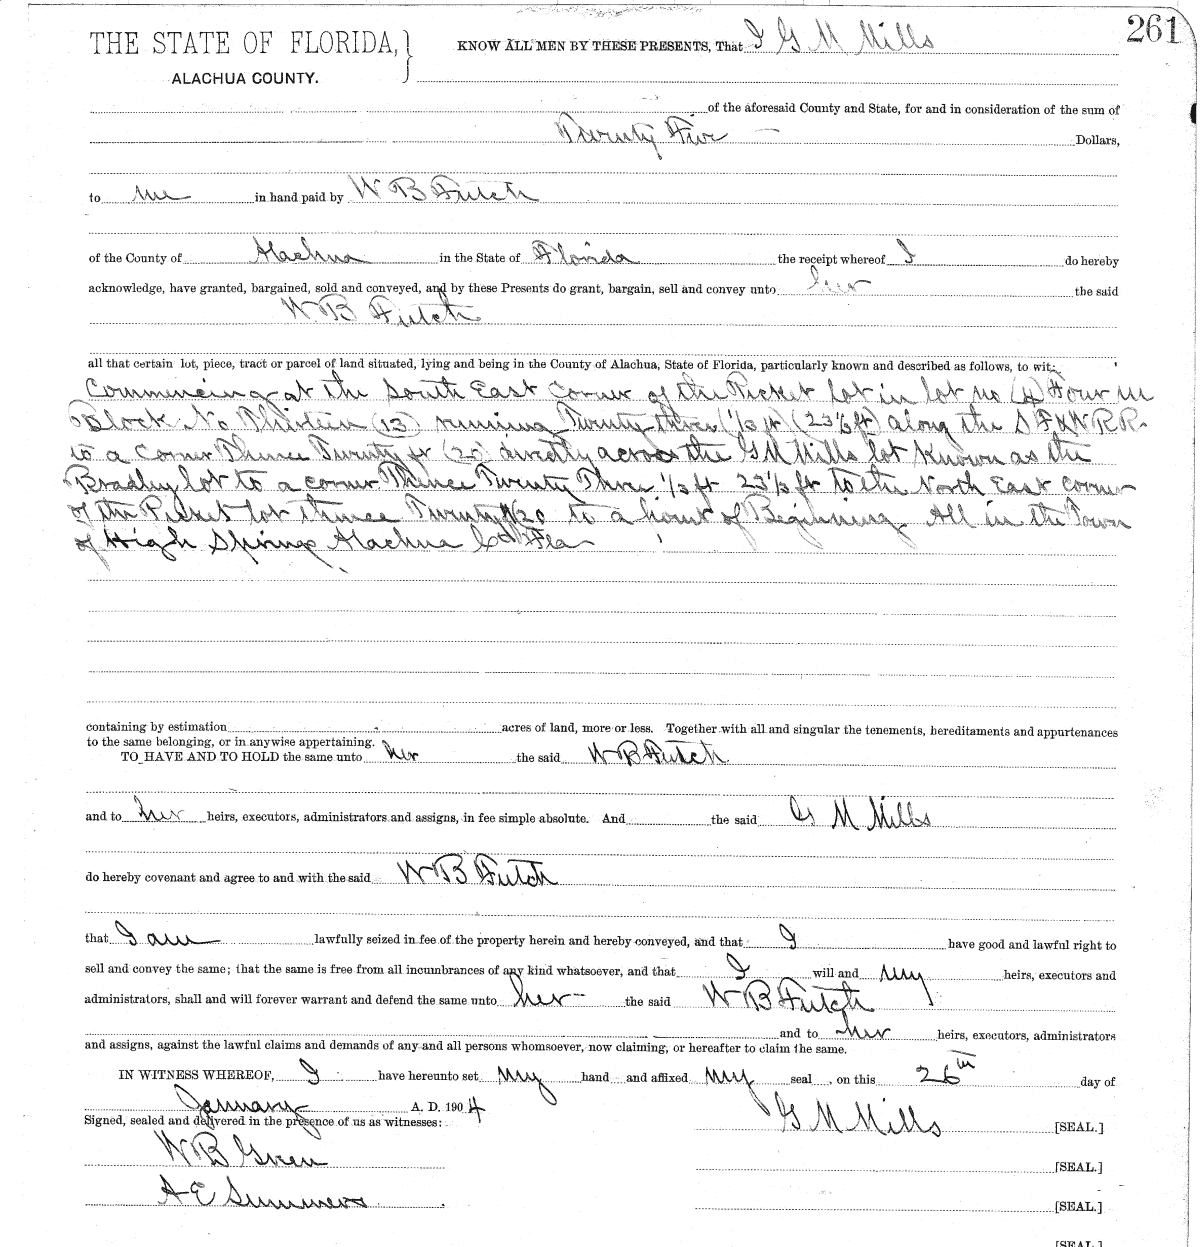 261
THE STATE OF FLORIDA, } KNOW ALL MEN BY THESE PRESENTS, That I G M Mills
ALACHUA COUNTY.
of the aforesaid County and State, for and in consideration of the sum of
Twenty Five — Dollars,
to me in hand paid by W B Futch
of the County of Alachua in the State of Florida the receipt whereof I do hereby
acknowledge, have granted, bargained, sold and conveyed, and by these Presents do grant, bargain, sell and convey unto her the said
W B Futch
all that certain lot, piece, tract or parcel of land situated, lying and being in the County of Alachua, State of Florida, particularly known and described as follows, to wit:
Commencing at the South East Corner of the Picket lot in lot no (4) Four in
Block No Thirteen (13) running Twenty three 1/3 ft (23 1/3 ft) along the S F & W R R
to a Corner Thence Twenty ft (20) directly across the G M Mills lot Known as the
Bradley lot to a corner Thence Twenty Three 1/3 ft 23 1/3 ft to the North East corner
of the Picket lot thence Twenty ft 20 to a point of Beginning All in the Town
of High Springs Alachua Co Fla
containing by estimation acres of land, more or less. Together with all and singular the tenements, hereditaments and appurtenances
to the same belonging, or in anywise appertaining.
TO HAVE AND TO HOLD the same unto her the said W B Futch
and to her heirs, executors, administrators and assigns, in fee simple absolute. And the said G M Mills
do hereby covenant and agree to and with the said W B Futch
that I am lawfully seized in fee of the property herein and hereby conveyed, and that I have good and lawful right to
sell and convey the same; that the same is free from all incumbrances of any kind whatsoever, and that I will and my heirs, executors and
administrators, shall and will forever warrant and defend the same unto her the said W B Futch
and to her heirs, executors, administrators
and assigns, against the lawful claims and demands of any and all persons whomsoever, now claiming, or hereafter to claim the same.
IN WITNESS WHEREOF, I have hereunto set my hand and affixed my seal, on this 26th day of
January A. D. 1904
Signed, sealed and delivered in the presence of us as witnesses: G M Mills [SEAL.]
W B Green [SEAL.]
A E Summers [SEAL.]
[SEAL.]